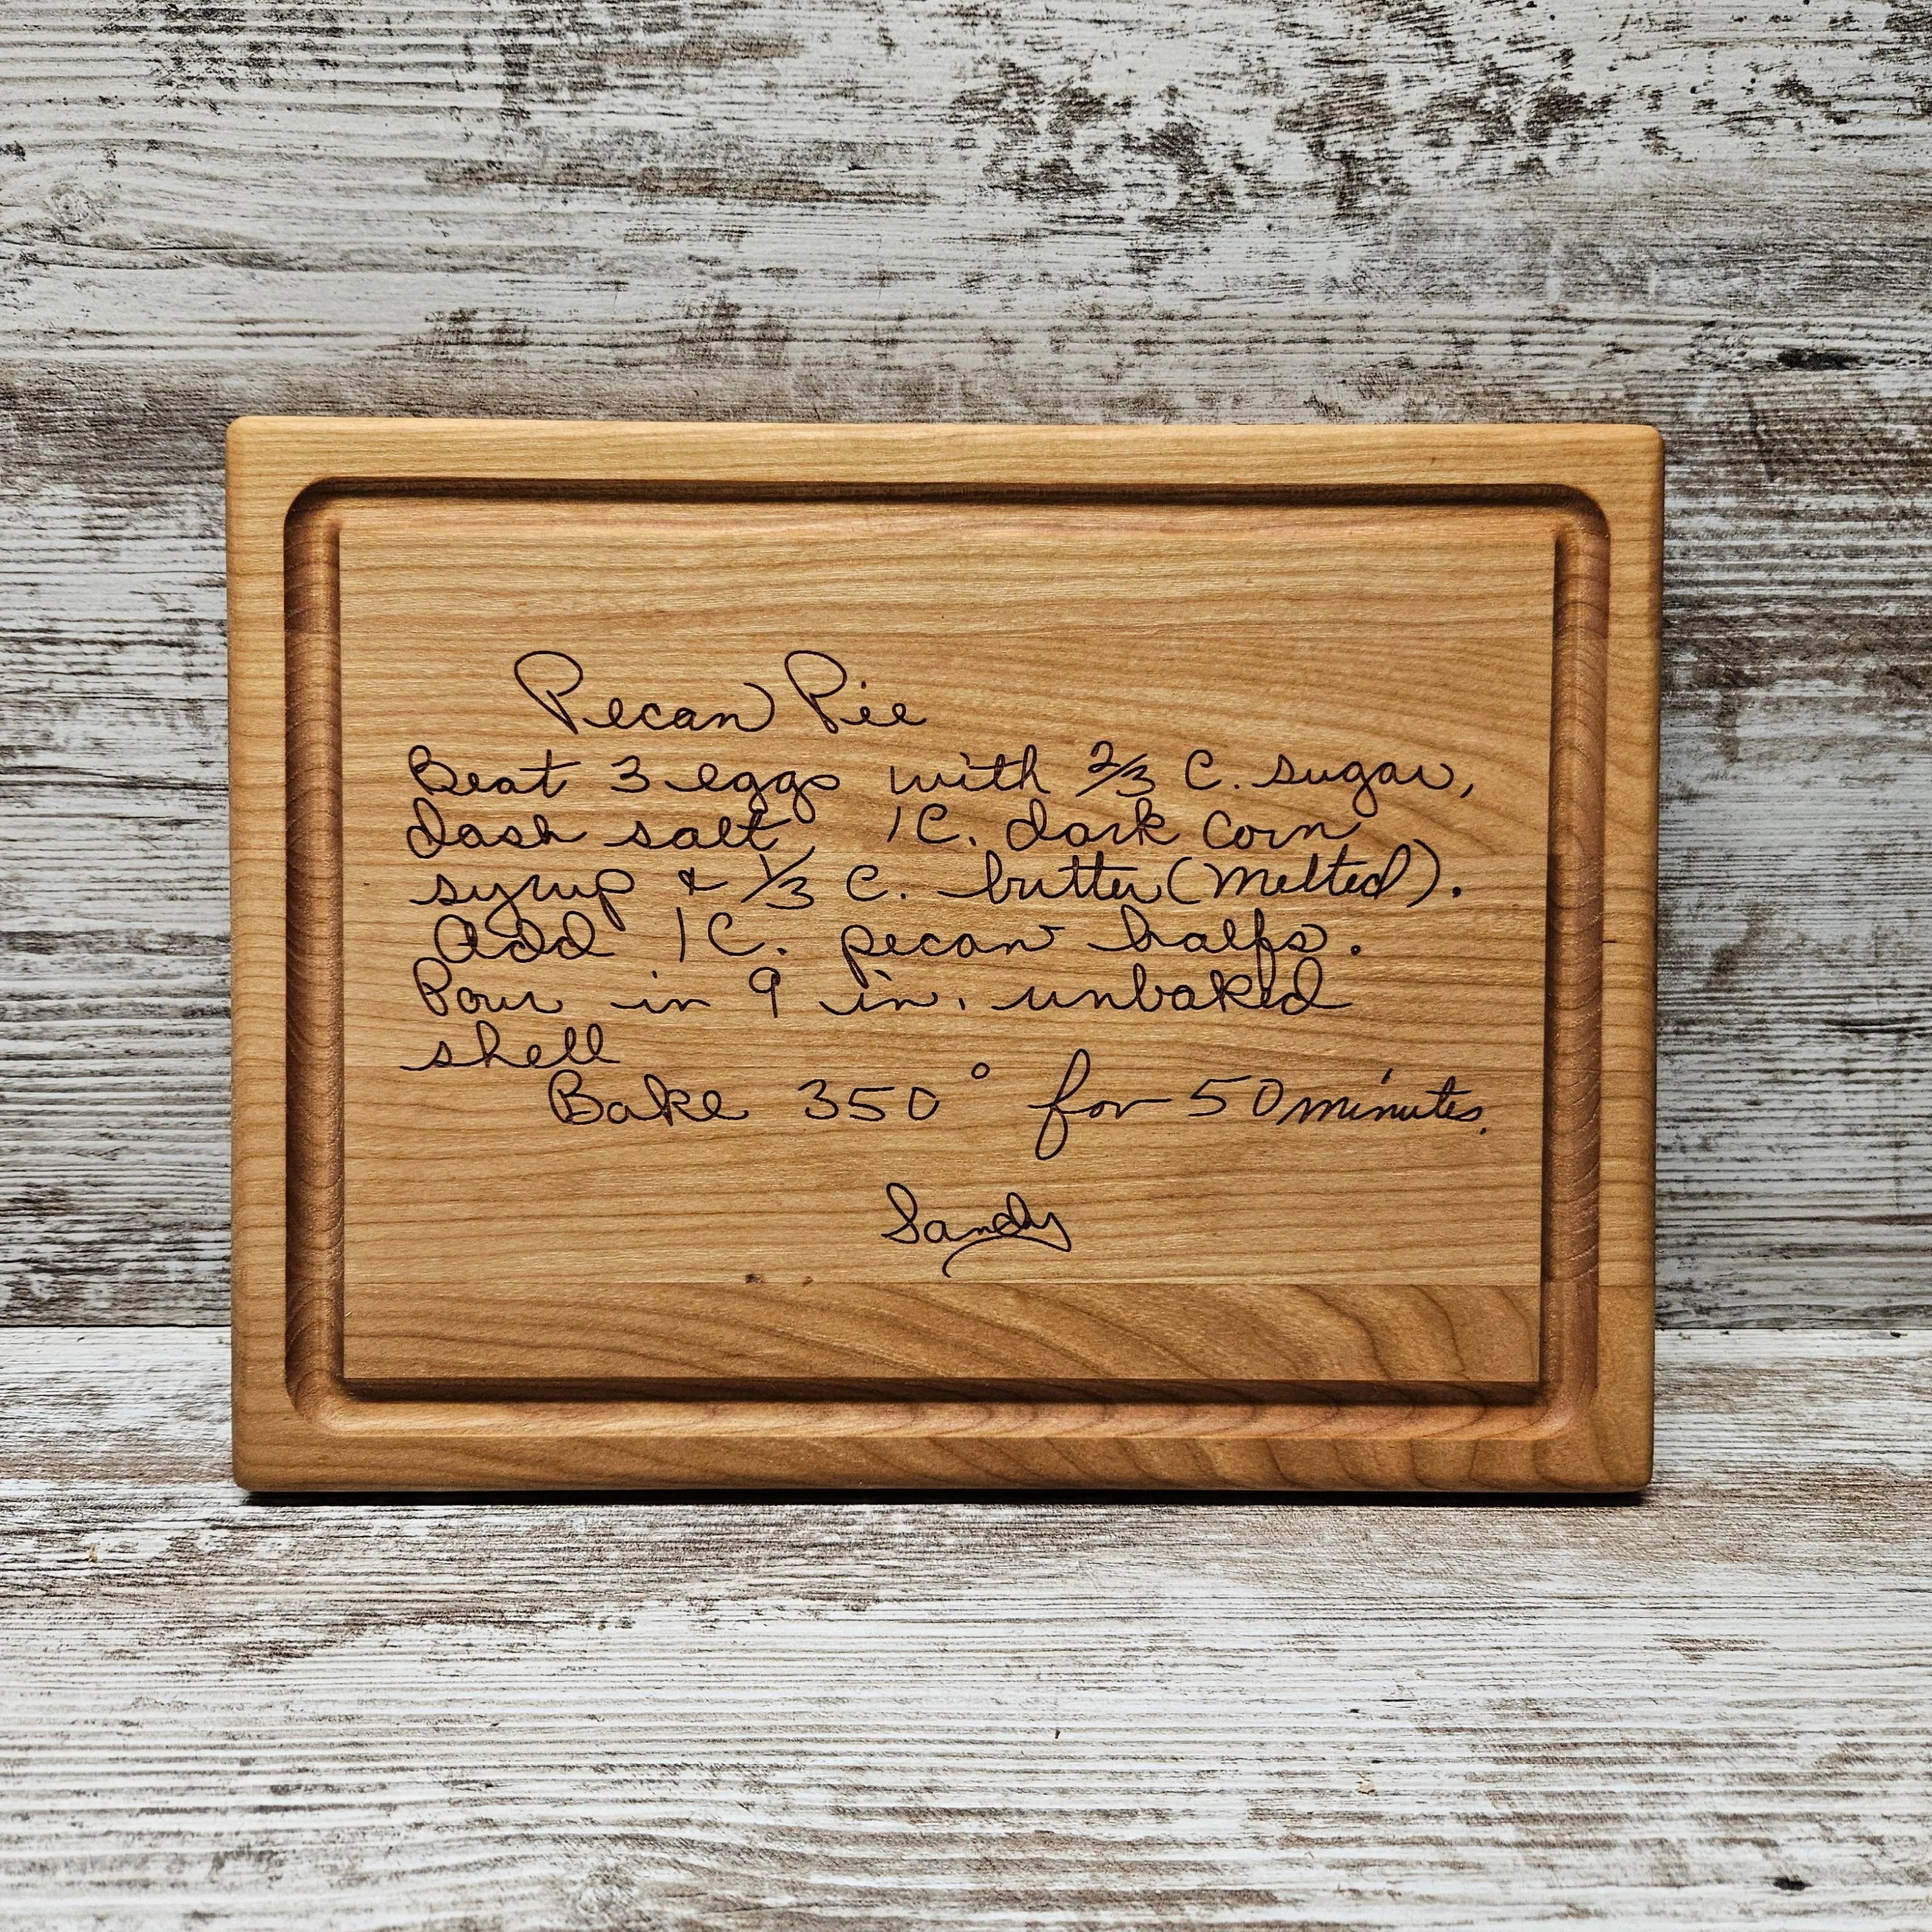 Pecan Pie
Beat 3 eggs with 2/3 C. sugar,
dash salt, 1C. dark corn
syrup & 1/3 C. butter (melted).
Add 1C. pecan halfs.
Pour in 9 in. unbaked
shell
Bake 350° for 50 minutes.
Sandy